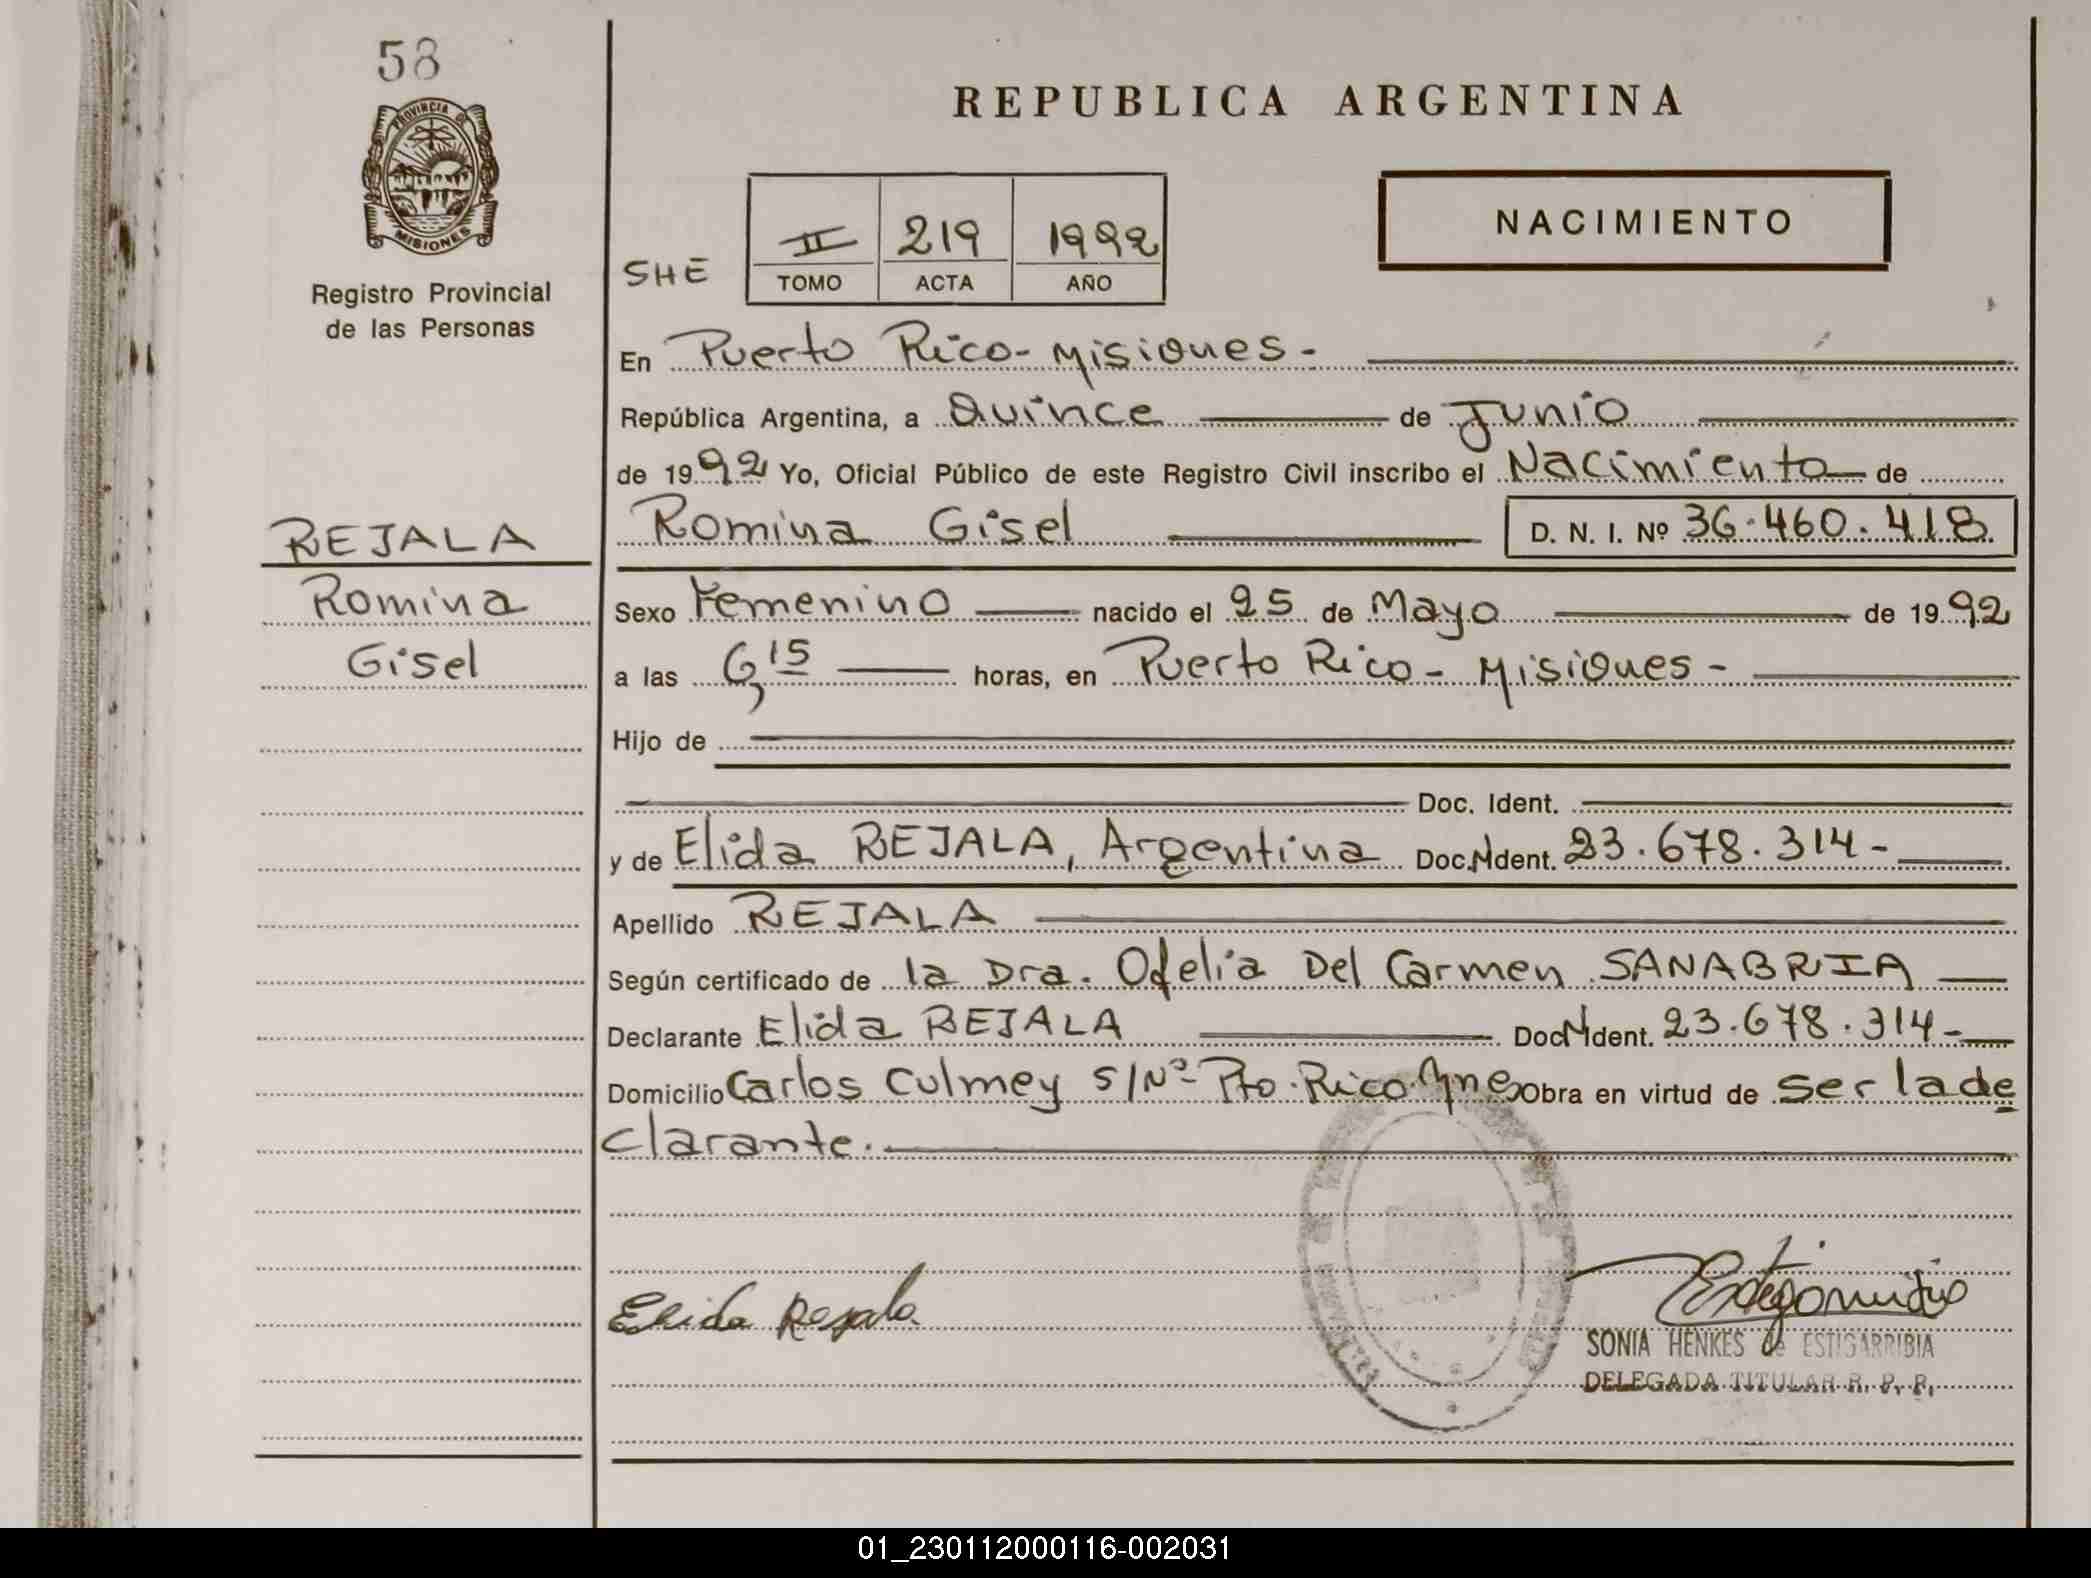 58
PROVINCIA DE
MISIONES
Registro Provincial
de las Personas
REJALA
Romina
Gisel
REPUBLICA ARGENTINA
NACIMIENTO
SHE
II 219 1992
TOMO ACTA AÑO
En Puerto Rico - Misiones -
República Argentina, a Quince de Junio
de 1992 Yo, Oficial Público de este Registro Civil inscribo el Nacimiento de
Romina Gisel D. N. I. Nº 36.460.418
Sexo Femenino nacido el 25 de Mayo de 1992
a las 6,15 horas, en Puerto Rico - Misiones -
Hijo de
Doc. Ident.
y de Elida REJALA, Argentina Doc. Ident. 23.678.314-
Apellido REJALA
Según certificado de la Dra. Ofelia Del Carmen SANABRIA
Declarante Elida REJALA Doc. Ident. 23.678.314-
Domicilio Carlos Culmey S/Nº Pto. Rico Mnes Obra en virtud de ser la de
clarante.
Elida Rejala
SONIA HENKES de ESTIGARRIBIA
DELEGADA TITULAR R. P. P.
01_230112000116-002031